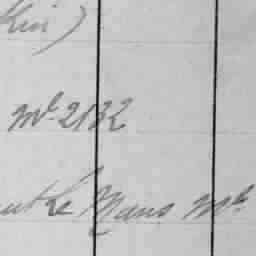 Kin)
Mle 2132
ut Le Mans Mle